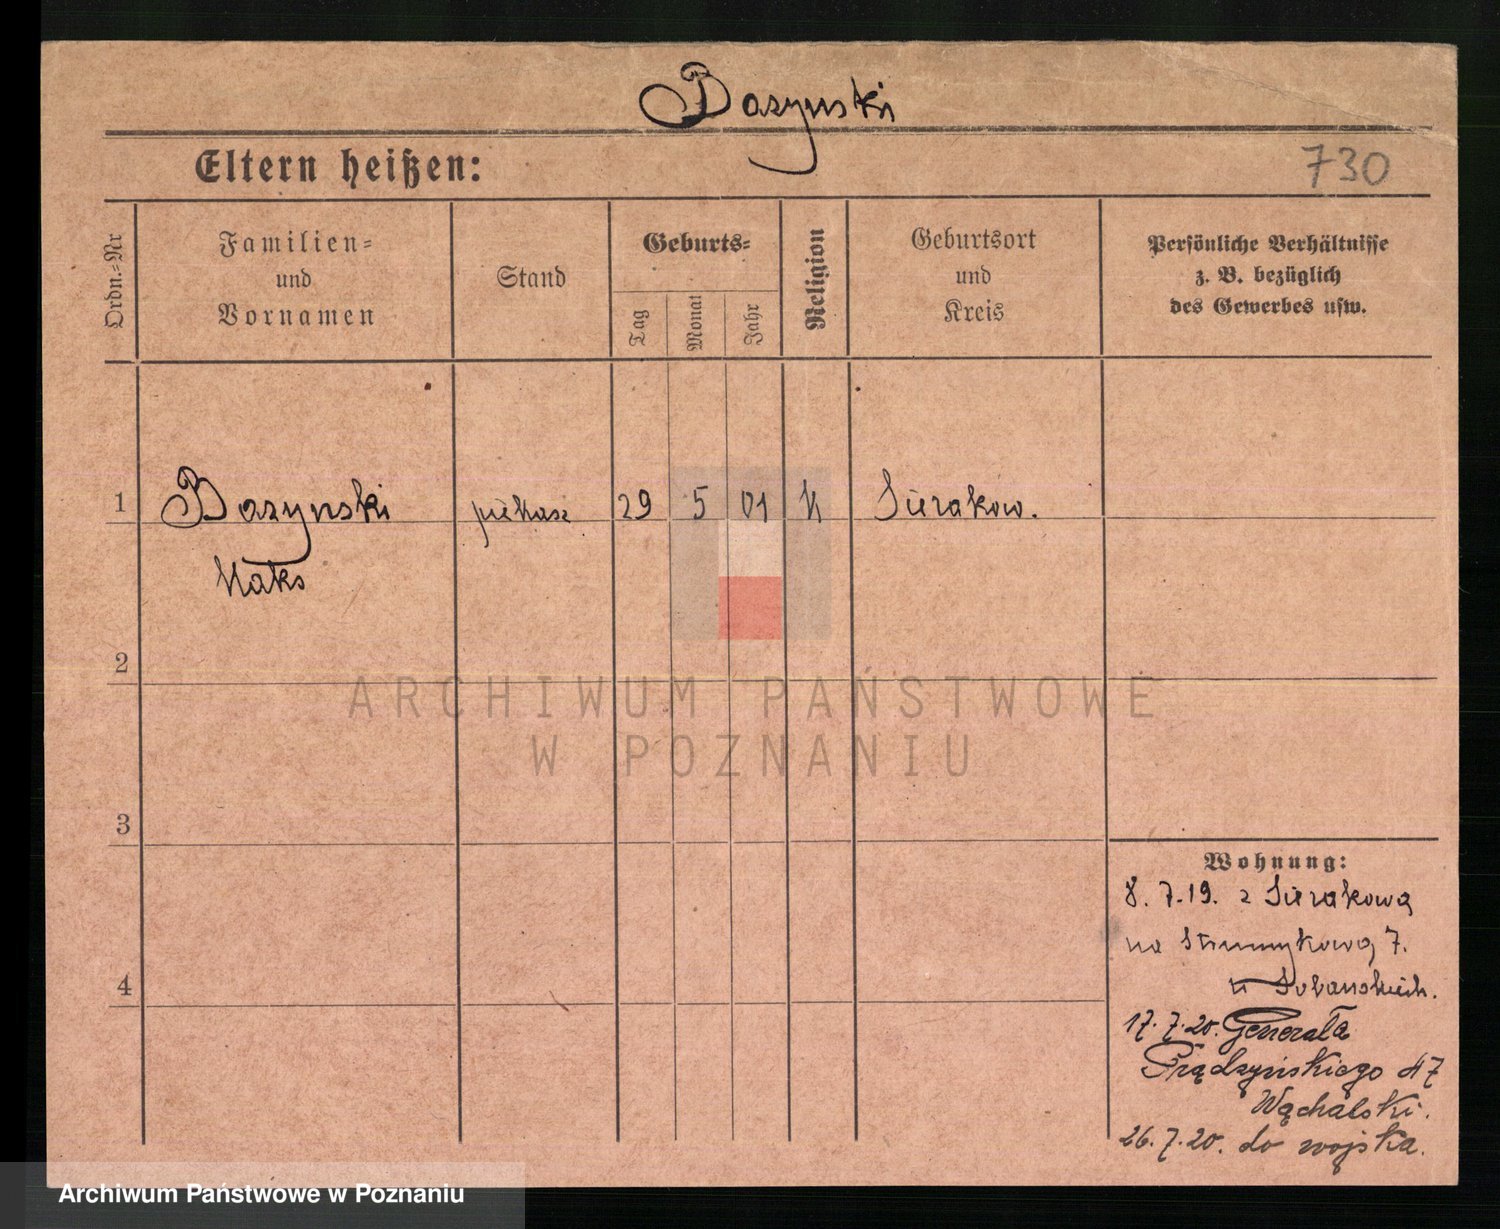 Bazynski
Eltern heißen:
730
Ordn.-Nr
Familien-
und
Vornamen
Stand
Geburts-
Tag
Monat
Jahr
Religion
Geburtsort
und
Kreis
Persönliche Verhältnisse
z. B. bezüglich
des Gewerbes usw.
1
Bazynski piekarz 29 5 01 k Sierakow.
Maks
2
ARCHIWUM PAŃSTWOWE
W POZNANIU
3
Wohnung:
8. 7.19. z Sierakowa
na Strumykową 7.
u
4
17.7.20. Generała
Prądzyńskiego 47
Wąchalski.
26.7.20. do wojska.
Archiwum Państwowe w Poznaniu